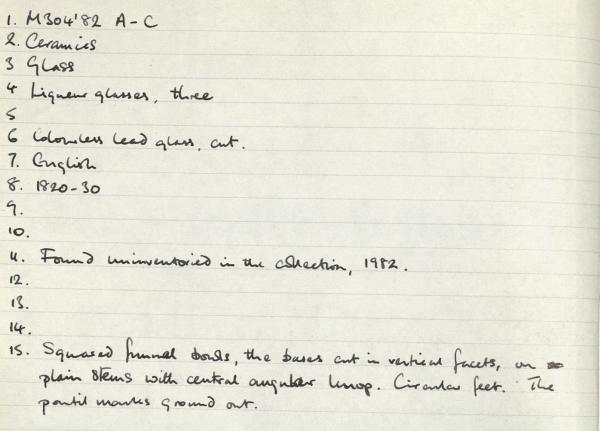 1. M304'82 A-C
2. Ceramics
3 Glass
4 Liqueur glasses, three
5
6 Colourless lead glass, cut.
7. English
8. 1820-30
9.
10.
11. Found uninventoried in the collection, 1982.
12.
13.
14.
15. Squared funnel bowls, the bases cut in vertical facets, on
plain stems with central angular knop. Circular feet. The
pontil marks ground out.